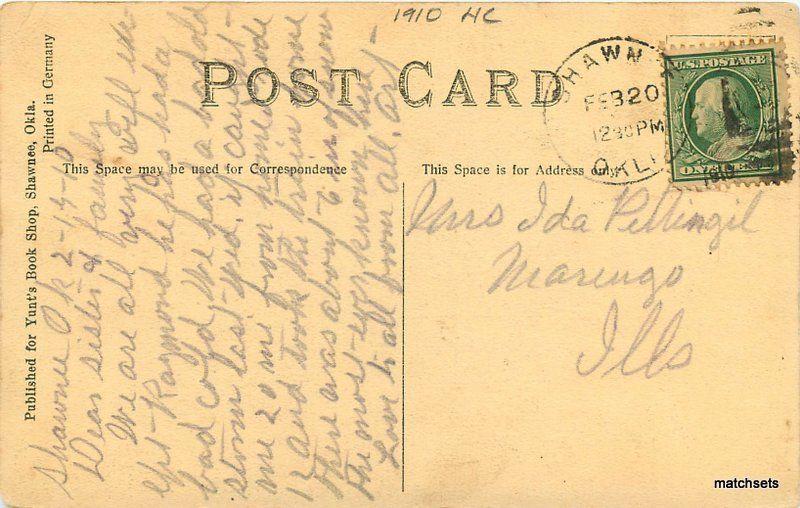 1910 HC
POST CARD
Published for Yunt's Book Shop, Shawnee, Okla.
Printed in Germany
This Space may be used for Correspondence
This Space is for Address only
SHAWNEE
FEB 20
12 30 PM
OKLA
1910
U.S. POSTAGE
ONE CENT
Shawnee Ok 2-19-10
Dear sister & family
We are all very well ex
ept Raymond he has had a
bad cold. We had a bad
storm last wed. it caught
me 20 mi from home rode
12 and took the train home
there was about 6 in of snow
the most ever known here
Love to all from all.
Mrs Ida Pettingil
Marengo
Ills
matchsets